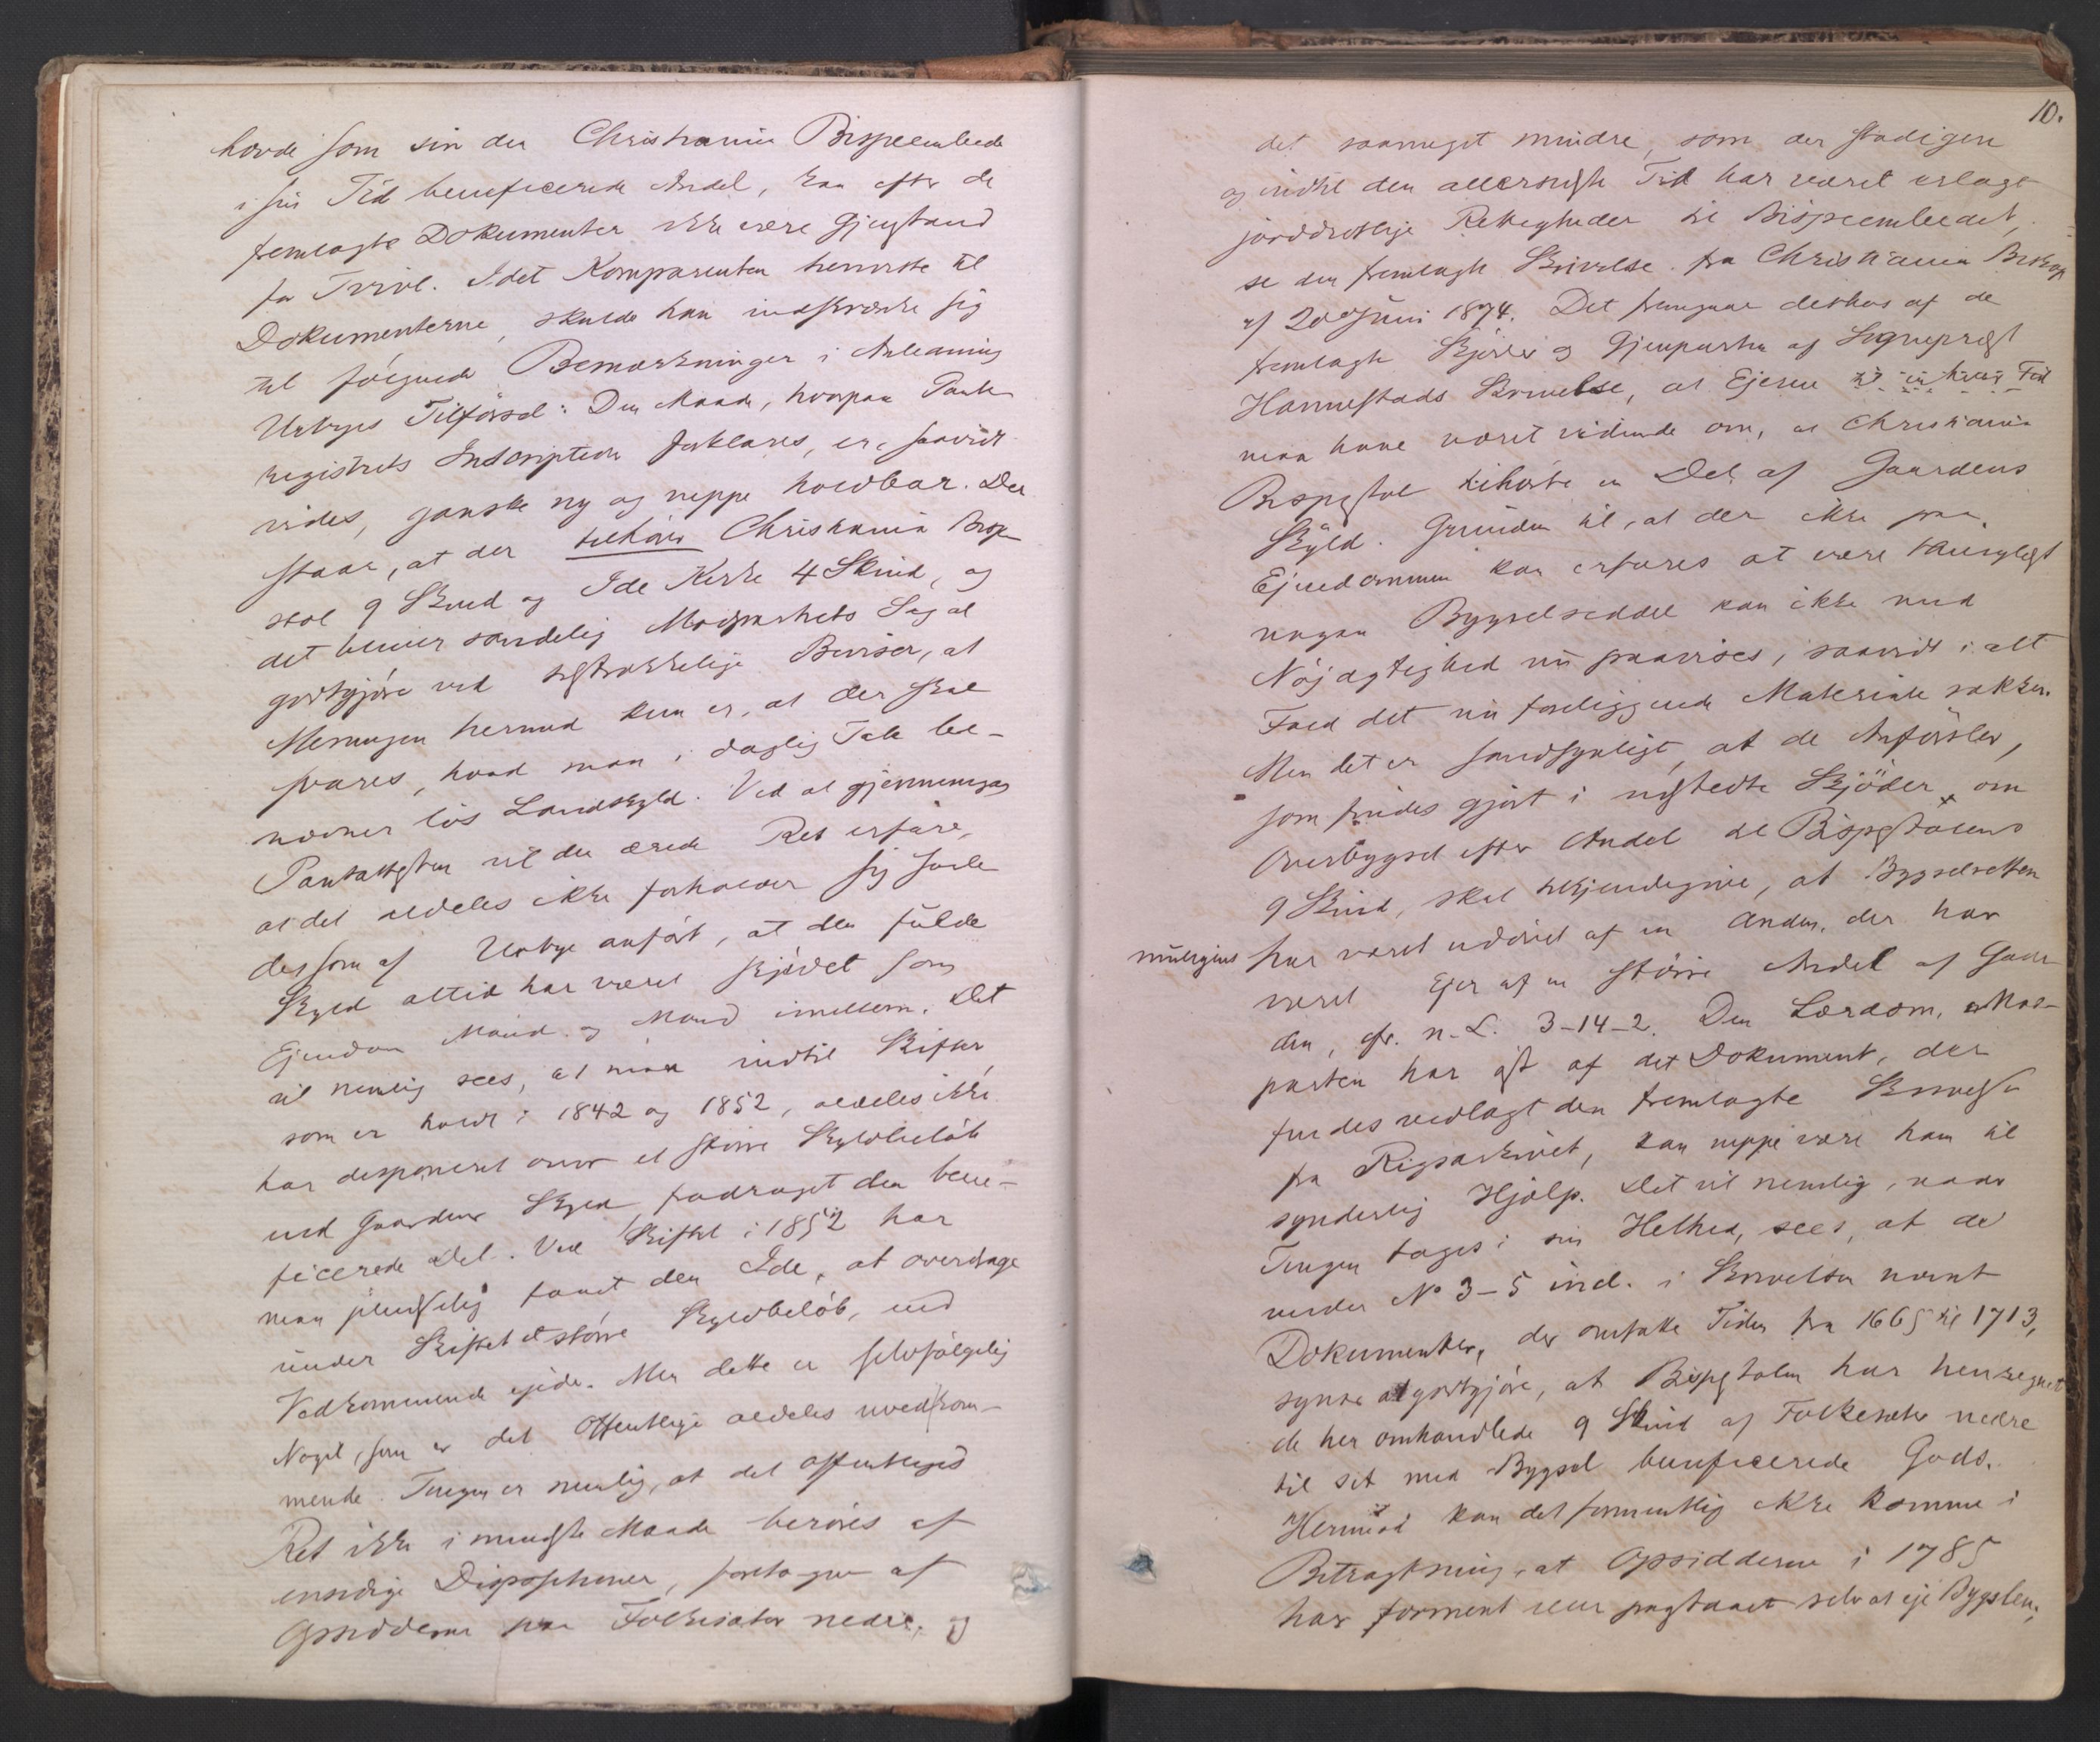 havde som sin der Christiania Bispeembede
i sin Tid beneficerede Andel, kan efter de
fremlagte Dokumenter ikke være Gjenstand
for Tvivl. Idet Komparenten henviste til
Dokumenterne, skulde han indskrænke sig
til følgende Bemærkninger i Anledning
Urbyes Tilførsel: Den Maade, hvorpaa Pante-
registrets Indskription forklares, er, saavidt
vides, ganske ny og neppe holdbar. Der
staar, at der tilhører Christiania Bispe-
stol 9 Skind og Ide Kirke 4 Skind, og
det bliver sandelig Modpartens Sag at
godtgjøre ved udtrykkelige Beviser, at
Meningen hermed kun er, at der skal
svares, hvad man i daglig Tale be-
nævner løs Landskyld. Ved at gjennemgaa
Pantattesten vil den ærede Ret erfare,
at det aldeles ikke forholder sig saale-
des som af Urbye anført, at den fulde
Skyld altid har været skjødet som
Ejendom Mand og Mand imellem. Det
vil nemlig sees, at man indtil Skifter,
som er holdt i 1842 og 1852, aldeles ikke
har disponeret over et større Skyldbeløb
end Gaardens Skyld fradraget den bene-
ficerede Del. Ved Skiftet i 1852 har
man pludselig fanet den Ide, at overdrage
under Skiftet et større Skyldbeløb, end
Vedkommende ejede. Men dette er selvfølgelig
Noget, som er det Offentlige aldeles uvedkom-
mende. Tingen er nemlig, at det offentliges
Ret ikke i mindste Maade berøres af
ensidige Dispositioner, foretagne af
Opsidderne paa Folkesæter nedre, og
10.
det saameget mindre, som der stadigen
og indtil den allersidste Tid har været erlagt
jorddrotlige Rettigheder til Bispeembedet,
se den fremlagte Skrivelse fra Christiania Biskop
af 20de Juni 1874. Det fremgaar derhos af de
fremlagte Skjøder og Gjenparten af Sogneprest
Hannestads Skrivelse, at Ejerne til enhver Tid
maa have været vidende om, at Christiania
Bispestol tilhørte en Del af Gaardens
Skyld. Grunden til, at der ikke paa
Ejendommen kan erfares at være thinglyst
nogen Bygselseddel kan ikke med
Nøjagtighed nu paavises, saavidt i alt
Fald det nu foreliggende Materiale rækker.
Men det er sandsynligt, at de Anførsler,
som findes gjort i udstedte Skjøder, om
Overbygsel efter Andel til Bispestolens
9 Skind, skal tilkjendegive, at Bygselretten
muligens har været udøvet af en Anden, der har
været Ejer af en større Andel af Gaar-
den, cfr. N. L. 3-14-2. Den Lærdom, Mod-
parten har øst af det Dokument, der
findes vedlagt den fremlagte Skrivelse
fra Rigsarkivet, kan neppe være ham til
synderlig Hjælp. Det vil nemlig, naar
Tingen tages i sin Helhed, sees, at de
under No 3-5 incl. i Skrivelsen nævnt
Dokumenter, der omfatte Tiden fra 1665 til 1713,
synes at godtgjøre, at Bispestolen har henregnet
de her omhandlede 9 Skind af Folkesæter nedre
til sit med Bygsel beneficerede Gods.
Hermod kan det formentlig ikke komme i
Betragtning, at Opsidderne i 1785
har forment eller paastaaet selv at eje Bygslen;